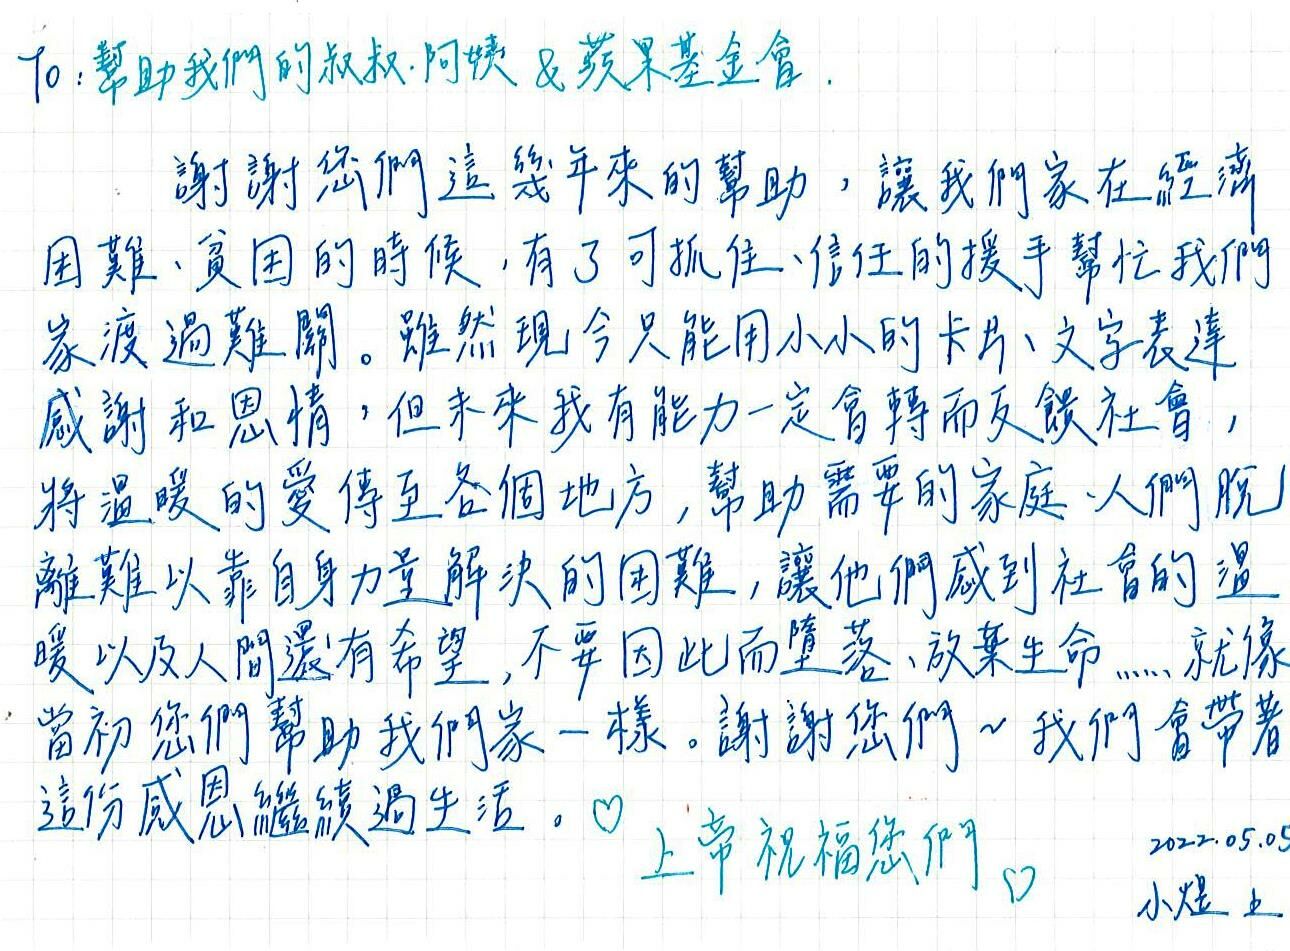 To:幫助我們的叔叔.阿姨 & 蘋果基金會.
謝謝您們這幾年來的幫助,讓我們家在經濟
困難、貧困的時候,有了可抓住、信任的援手幫忙我們
家渡過難關。雖然現今只能用小小的卡片、文字表達
感謝和恩情,但未來我有能力一定會轉而反饋社會,
將溫暖的愛傳至各個地方,幫助需要的家庭、人們脫
離難以靠自身力量解決的困難,讓他們感到社會的溫
暖以及人間還有希望,不要因此而墮落、放棄生命......就像
當初您們幫助我們家一樣。謝謝您們~我們會帶著
這份感恩繼續過生活。♡
上帝祝福您們♡
2022.05.05
小煜 上